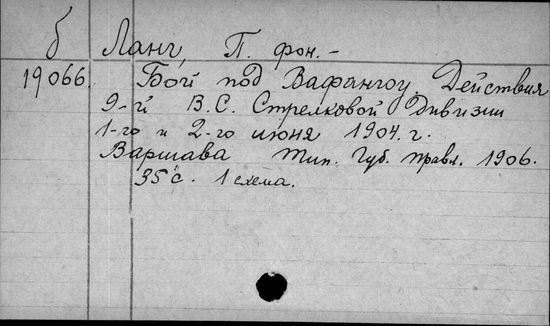 б Ланг, П. фон.-
19066. Бой под Вафангоу. Действия
9-й В.С. Стрелковой Дивизии
1-го и 2-го июня 1904. г.
Варшава Тип. Губ. правл. 1906.
35 с. 1 схема.